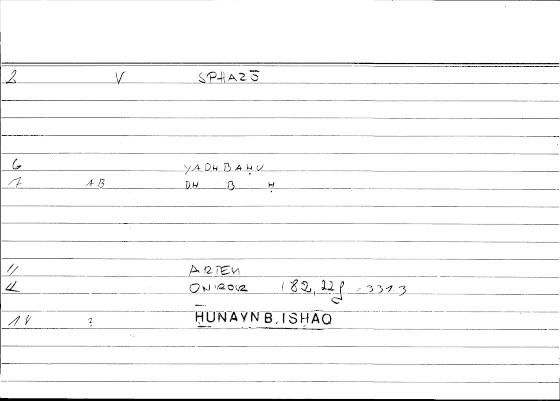 2 V SPHAZŌ
6 YADHBAḤU
7 AB DH B Ḥ
11 ARTEM
12 ONIROCR 182, 22f = 331.3
14 ? ḤUNAYN B. ISḤĀQ